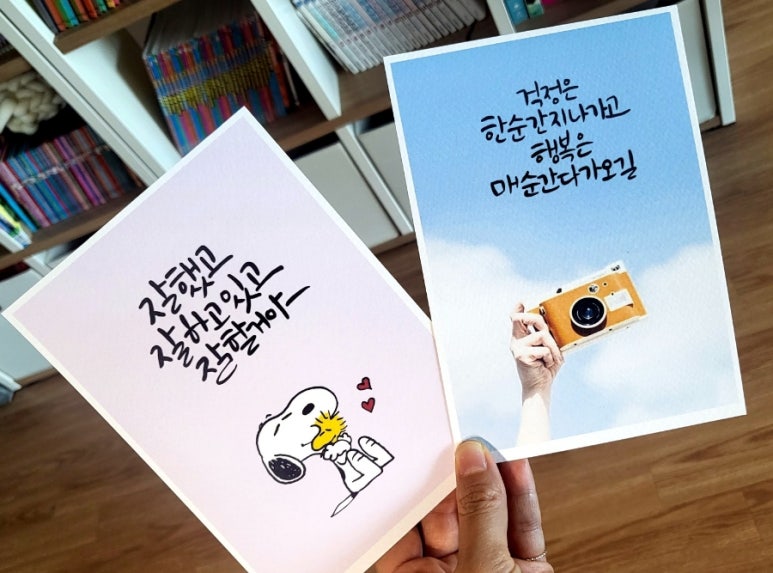 잘했고
잘하고 있고
잘할거야
걱정은
한순간 지나가고
행복은
매순간 다가오길